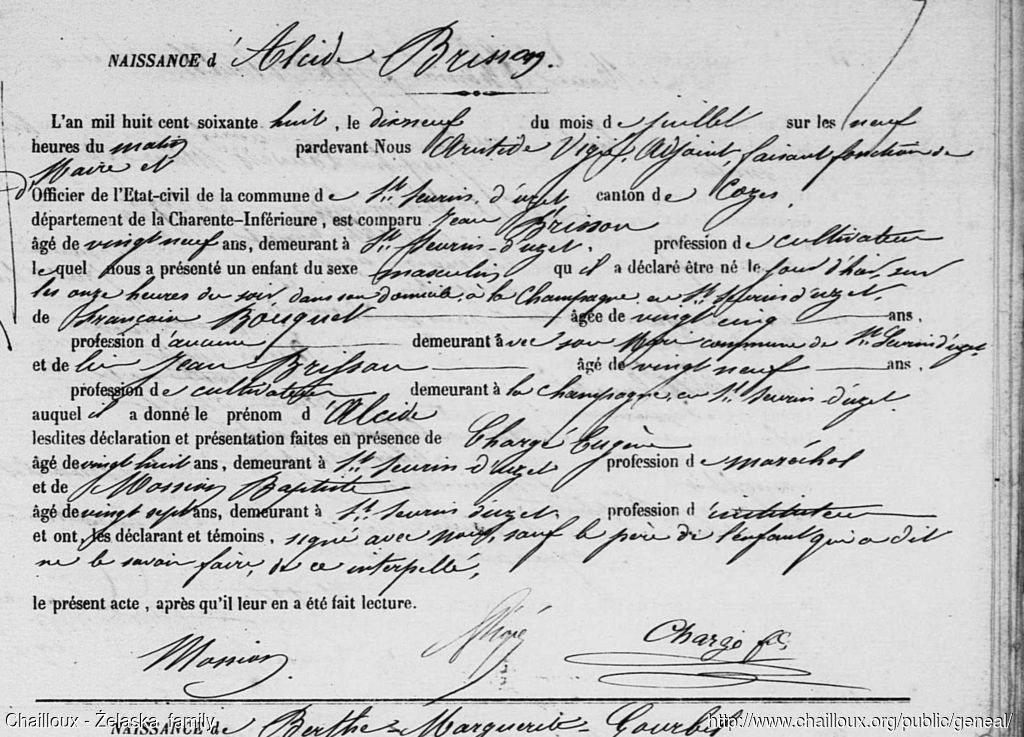 NAISSANCE d'Alcide Brisson.
L'an mil huit cent soixante huit, le dix neuf du mois de juillet sur les neuf
heures du matin pardevant Nous Aristide Viger, Adjoint, faisant fonction de
Maire et
d'Officier de l'Etat-civil de la commune de St. Seurin d'uzet, canton de Cozes,
département de la Charente-Inférieure, est comparu Jean Brisson
âgé de vingt neuf ans, demeurant à St. Seurin-d'uzet. profession de cultivateur
lequel nous a présenté un enfant du sexe masculin qu'il a déclaré être né le jour d'hier, sur
les onze heures du soir, dans son domicile, à la Champagne, en St. Seurin d'uzet,
de Françoise Bouquet âgée de vingt cinq ans.
profession d'aucune demeurant avec son Mari commune de St. Seurin d'uzet
et de lui Jean Brisson âgé de vingt neuf ans.
profession de cultivateur demeurant à la champagne, en St. Seurin-d'uzet.
auquel il a donné le prénom d'Alcide
lesdites déclaration et présentation faites en présence de Chargé Eugène
âgé de vingt huit ans, demeurant à St. Seurin d'uzet profession de maréchal
et de Mossion Baptiste
âgé de vingt sept ans, demeurant à St. Seurin d'uzet. profession d'instituteur
et ont, les déclarant et témoins, signé avec nous, sauf le père de l'enfant qui a dit
ne le savoir faire, de ce interpellé,
le présent acte, après qu'il leur en a été fait lecture.
Mossion Chargé
NAISSANCE de Berthe-Marguerite Gourbil
Chailloux - Żelaska family http://www.chailloux.org/public/geneal/